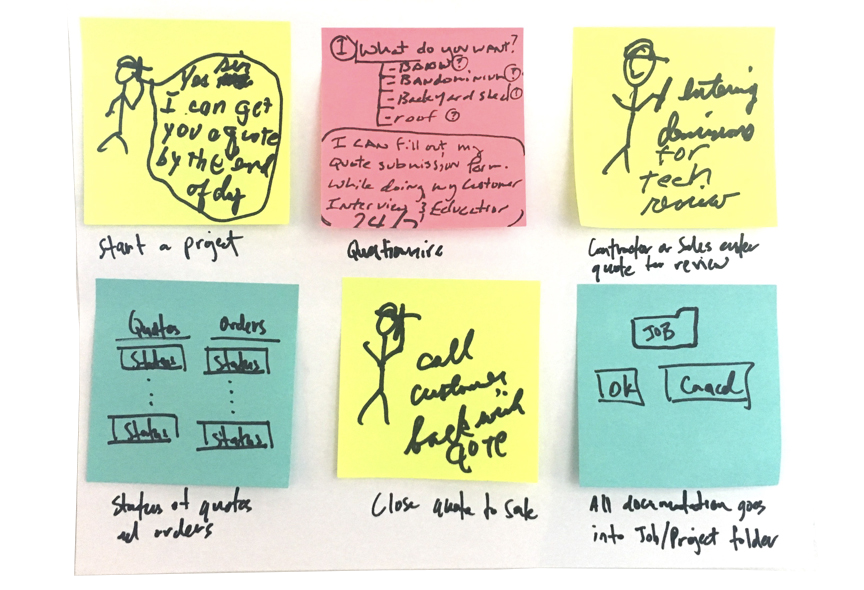 Yes sir
I can get
you a quote
by the end
of dy
Start a project
1 What do you want?
- BARN ?
- Bandominium ?
- Backyard shed ?
- roof ?
I CAN fill out my
Quote submission form.
While doing my customer
Interview & Education
24/7
Questionnire
entering
dimensions
for
tech
review
Contractor or Sales enter
quote for review
Quotes
Orders
Status
Status
Status
Status
Status of quotes
ad orders
call
customer
back with
qote
Close quote to Sale
JOB
OK
Cancel
All documentation goes
into Job/Project folder